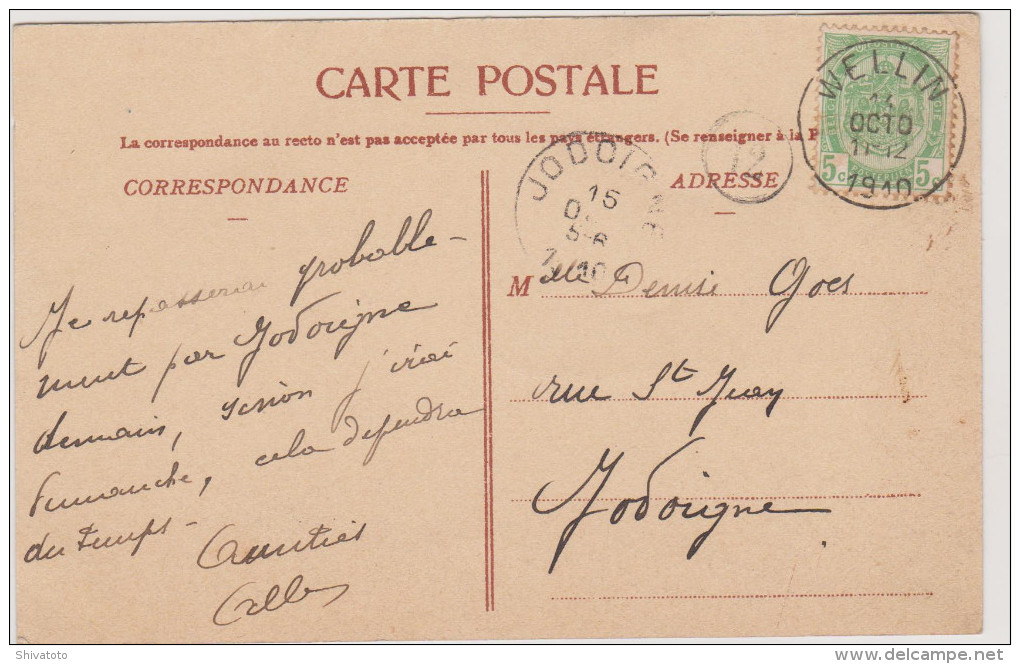 CARTE POSTALE
La correspondance au recto n'est pas acceptée par tous les pays étrangers. (Se renseigner à la P
CORRESPONDANCE
ADRESSE
WELLIN
14
OCTO
11-12
1910
5c
5c
12
JODOIGNE
15
5-6
10
Je repasserai probable-
ment par Jodoigne
demain, sinon j'irai
Dimanche, cela dépendra
du temps-
Amitiés
Mlle Denise Goes
rue St Jean
Jodoigne
Shivatoto
www.delcampe.net